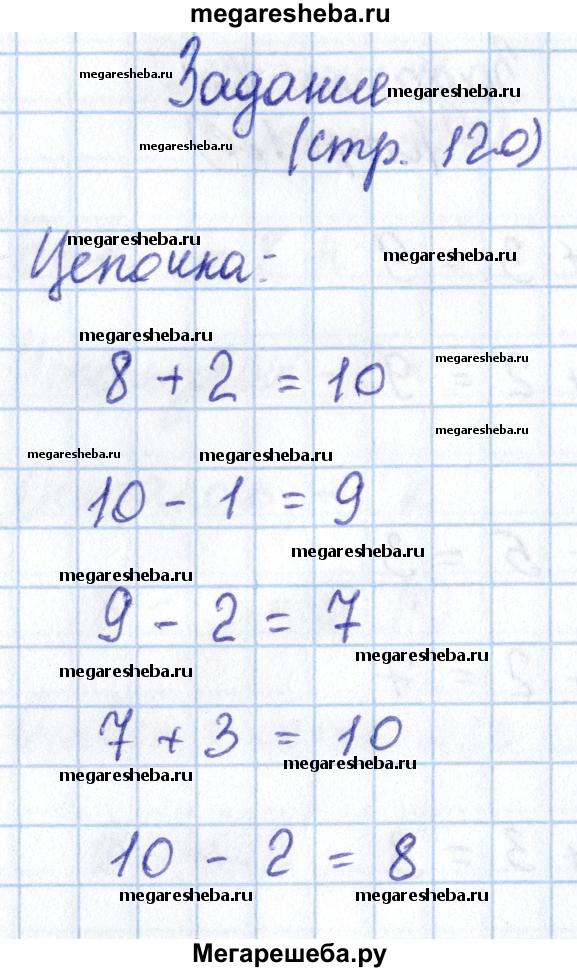 megaresheba.ru
megaresheba.ru
Задание
megaresheba.ru
megaresheba.ru
(стр. 120)
megaresheba.ru
Цепочка:
megaresheba.ru
megaresheba.ru
megaresheba.ru
8 + 2 = 10
megaresheba.ru
megaresheba.ru
megaresheba.ru
10 - 1 = 9
megaresheba.ru
megaresheba.ru
9 - 2 = 7
megaresheba.ru
megaresheba.ru
7 + 3 = 10
megaresheba.ru
megaresheba.ru
10 - 2 = 8
megaresheba.ru
megaresheba.ru
Мегарешеба.ру